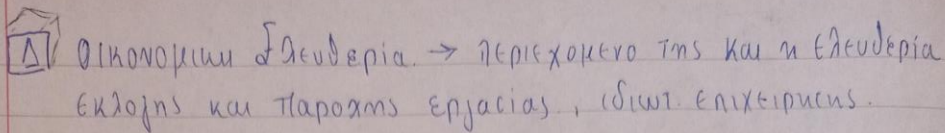 Δ Οικονομικη ελευθερία → περιεχομενο της και η ελευθερία
εκλογης και παροχης εργασίας, ιδιωτ. επιχειρησης.